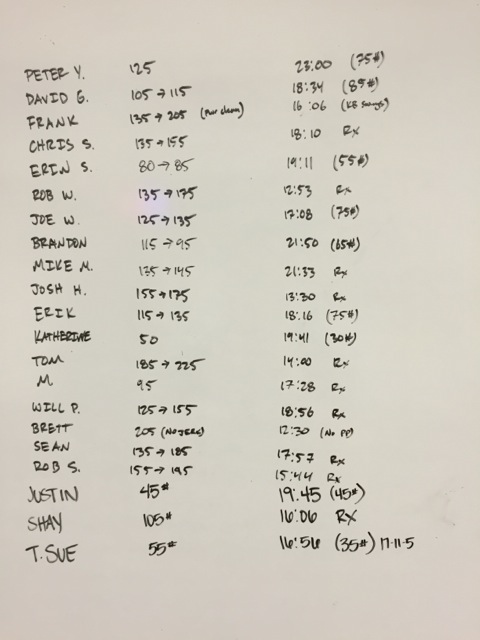 PETER Y. 125 23:00 (75#)
DAVID G. 105 → 115 18:34 (85#)
FRANK 135 → 205 (PWR clean) 16:06 (KB swings)
CHRIS S. 135 → 155 18:10 Rx
ERIN S. 80 → 85 19:11 (55#)
ROB W. 135 → 175 12:53 Rx
JOE W. 125 → 135 17:08 (75#)
BRANDON 115 → 95 21:50 (65#)
MIKE M. 135 → 145 21:33 Rx
JOSH H. 155 → 175 13:30 Rx
ERIK 115 → 135 18:16 (75#)
KATHERINE 50 19:41 (30#)
TOM 185 → 225 14:00 Rx
M 95 17:28 Rx
WILL P. 125 → 155 18:56 Rx
BRETT 205 (NO JERK) 12:30 (No PP)
SEAN 135 → 185 17:57 Rx
ROB S. 155 → 195 15:44 Rx
JUSTIN 45# 19:45 (45#)
SHAY 105# 16:06 RX
T. SUE 55# 16:56 (35#) 17-11-5